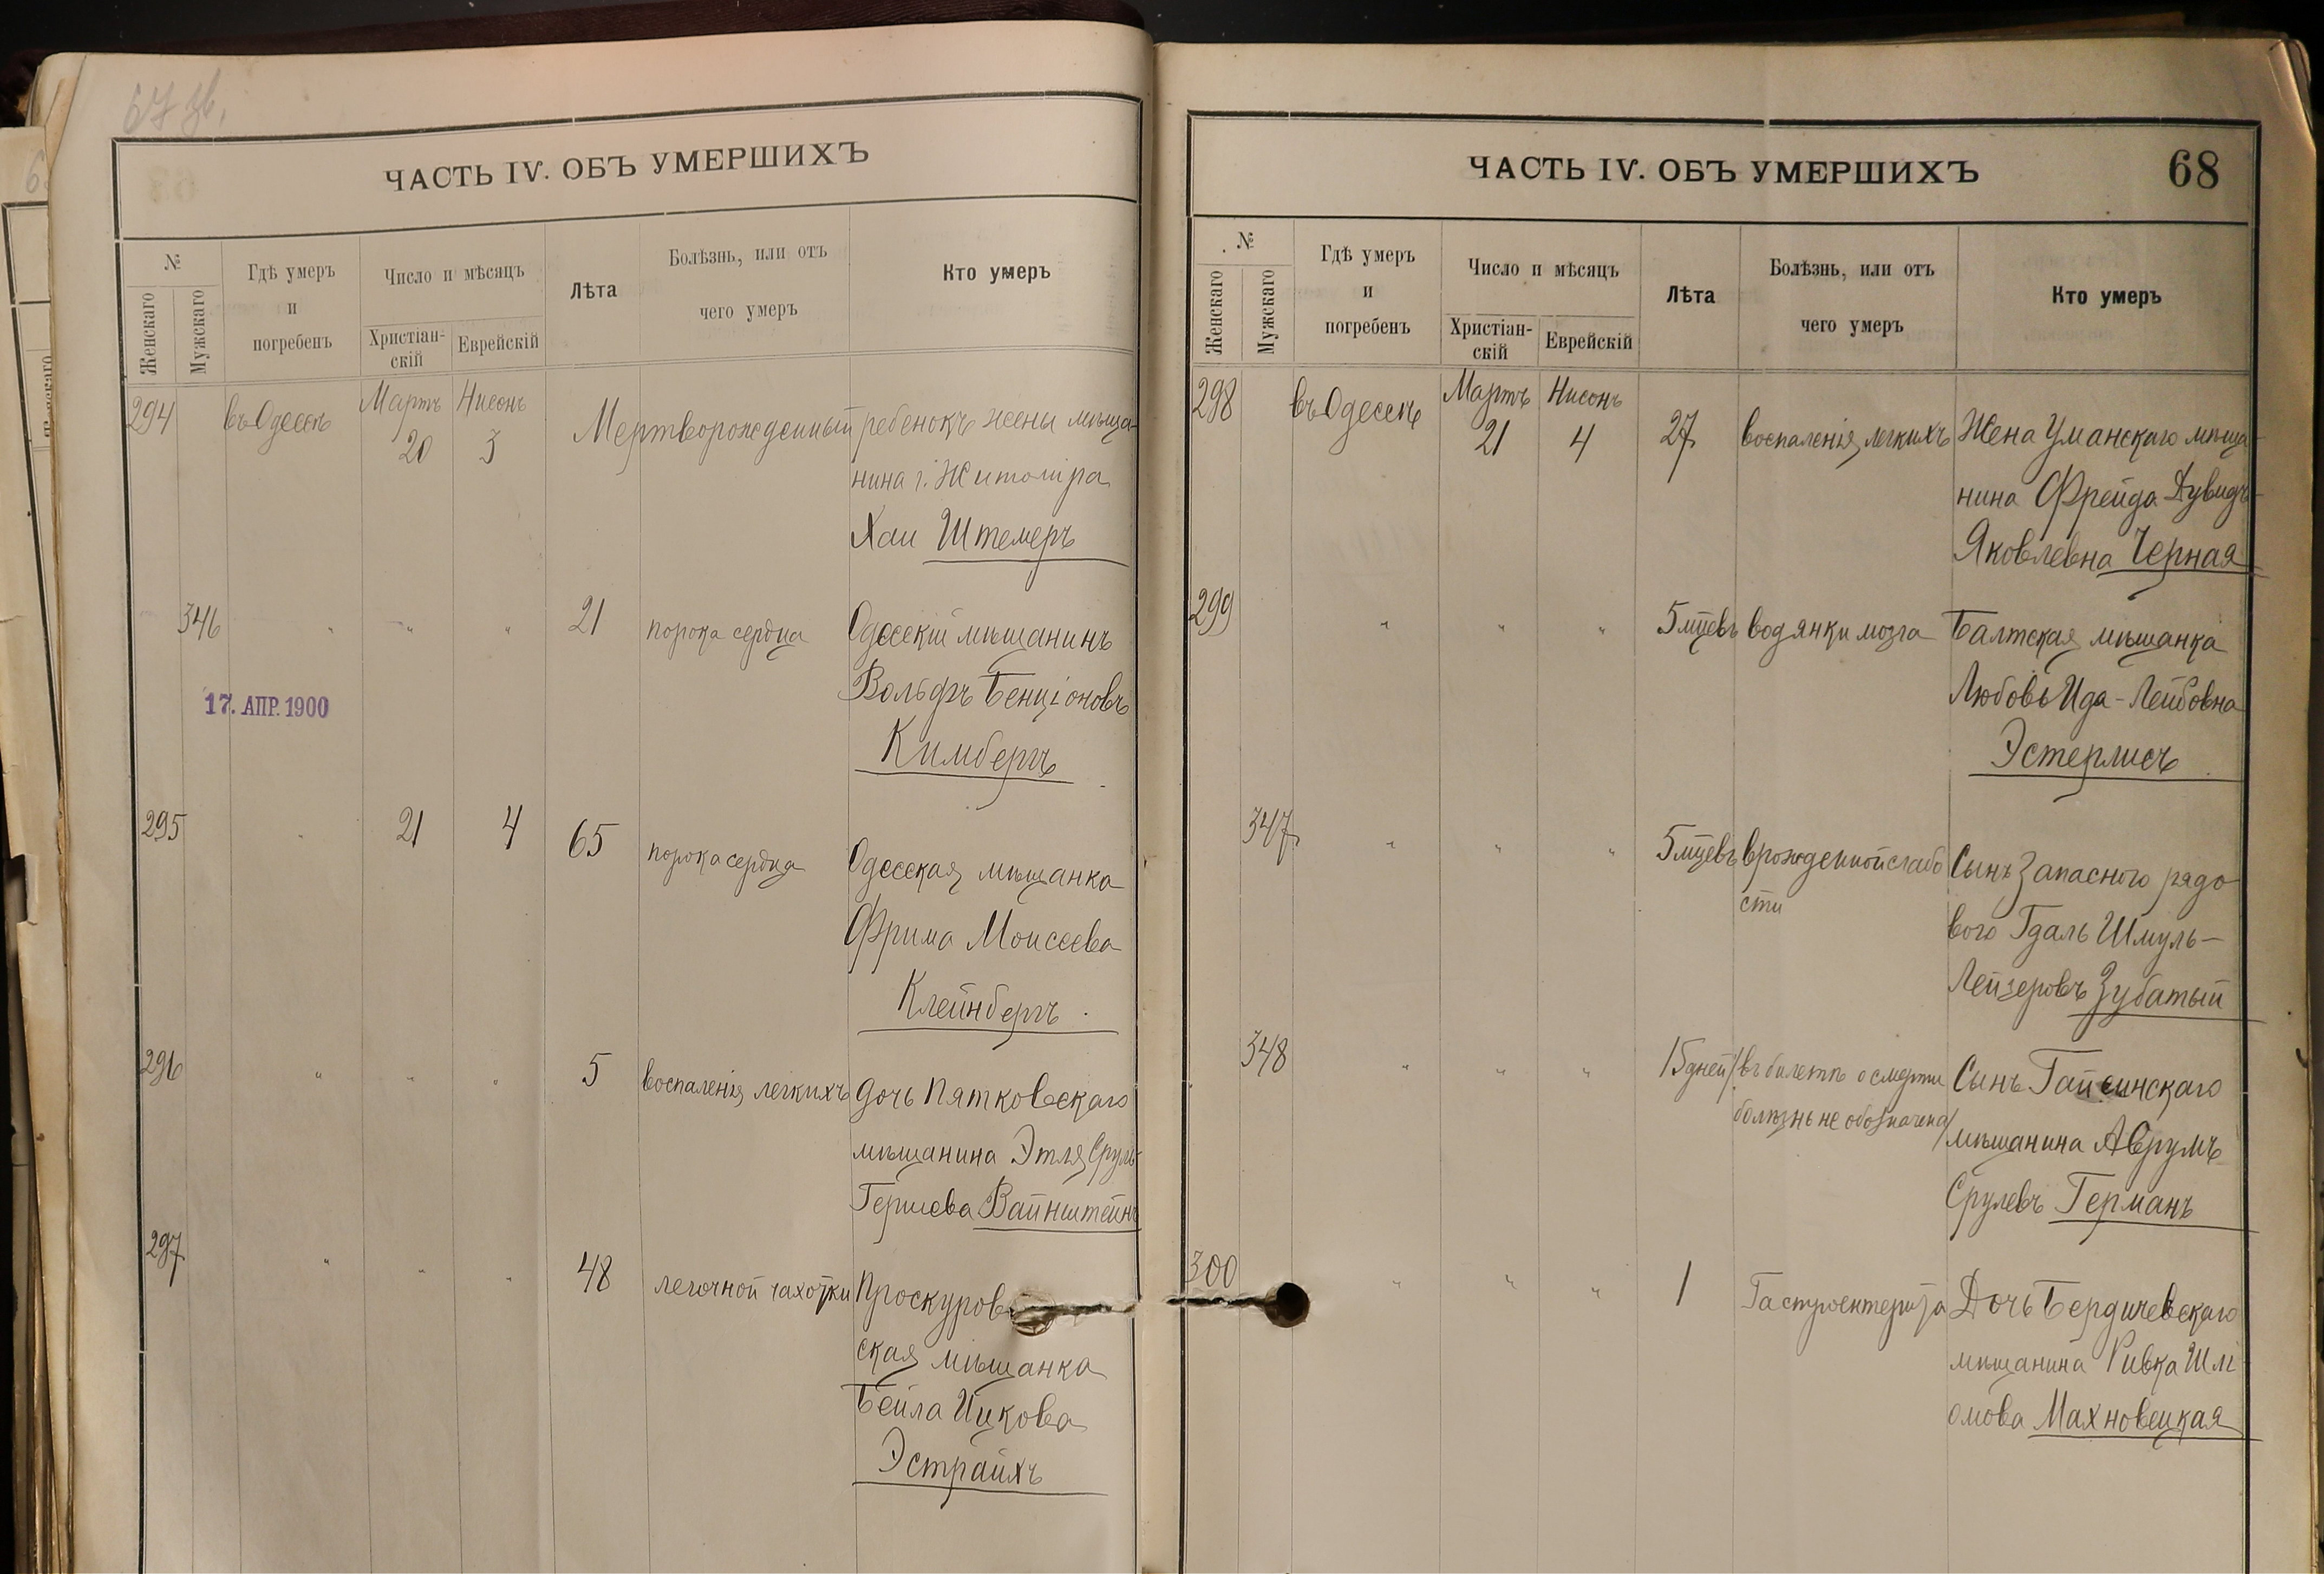 67 зв.
ЧАСТЬ IV. ОБЪ УМЕРШИХЪ
№
Женскаго
Мужскаго
Гдѣ умеръ
и
погребенъ
Число и мѣсяцъ
Христіан-
скій
Еврейскій
Лѣта
Болѣзнь, или отъ
чего умеръ
Кто умеръ
294 въ Одессѣ Мартъ Нисонъ
20 3
Мертворожденный ребенокъ жены мѣща-
нина г. Житоміра
Хаи Штемеръ
346 " " " 21 порока сердца Одесскій мѣщанинъ
Вольфъ Бенціоновъ
17. АПР. 1900
Кимбергъ
295 " 21 4 65 порока сердца Одесская мѣщанка
Фрима Моисеева
Клейнбергъ
296 " " " 5 воспаленія легкихъ Дочь Пятковскаго
мѣщанина Этля Сруль-
Гершева Вайнштейнъ
297 " " " 48 легочной чахотки Проскуров
ская мѣщанка
Бейла Ицкова
Эстрайхъ
ЧАСТЬ IV. ОБЪ УМЕРШИХЪ
68
№
Женскаго
Мужскаго
Гдѣ умеръ
и
погребенъ
Число и мѣсяцъ
Христіан-
скій
Еврейскій
Лѣта
Болѣзнь, или отъ
чего умеръ
Кто умеръ
298 въ Одессѣ Мартъ Нисонъ
21 4 27 воспаленія легкихъ Жена Уманскаго мѣща-
нина Фрейда Дувидъ-
Яковлевна Черная
299 " " " 5 мцевъ водянки мозга Балтская мѣщанка
Любовь Ида-Лейбовна
Эстерлисъ
347 " " " 5 мцевъ врожденной слабо Сынъ запасного рядо
сти
вого Гдаль Шмуль-
Лейзеровъ Зубатый
348 " " " 15 дней /въ билетѣ о смерти Сынъ Гайсинскаго
болѣзнь не обозначена/
мѣщанина Аврумъ
Срулевъ Германъ
300 " " " 1 Гастроентерита Дочь Бердичевскаго
мѣщанина Ривка Шл
омова Махновецкая